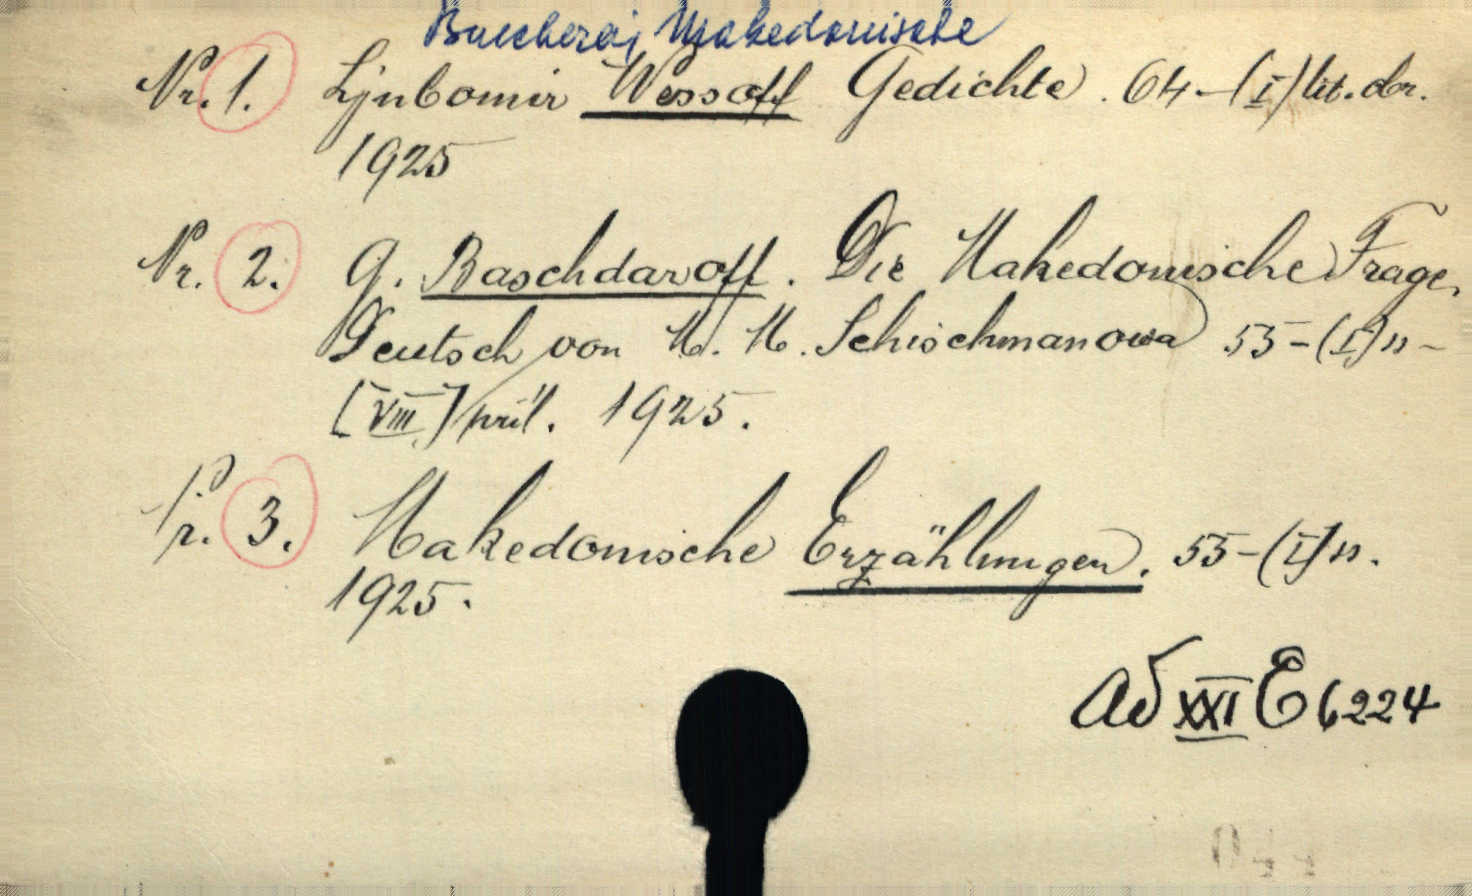 Buecherei, Makedonische
Nr. 1. Ljubomir Wessoff Gedichte. 64-(I) lit. dr.
1925
Nr. 2. G. Baschdaroff. Die Makedonische Frage,
Deutsch von M. M. Schischmanowa 55-(I)
[VIII] pril. 1925.
Nr. 3. Makedonische Erzählungen. 55-(I)
1925.
Ad XXI E 6224